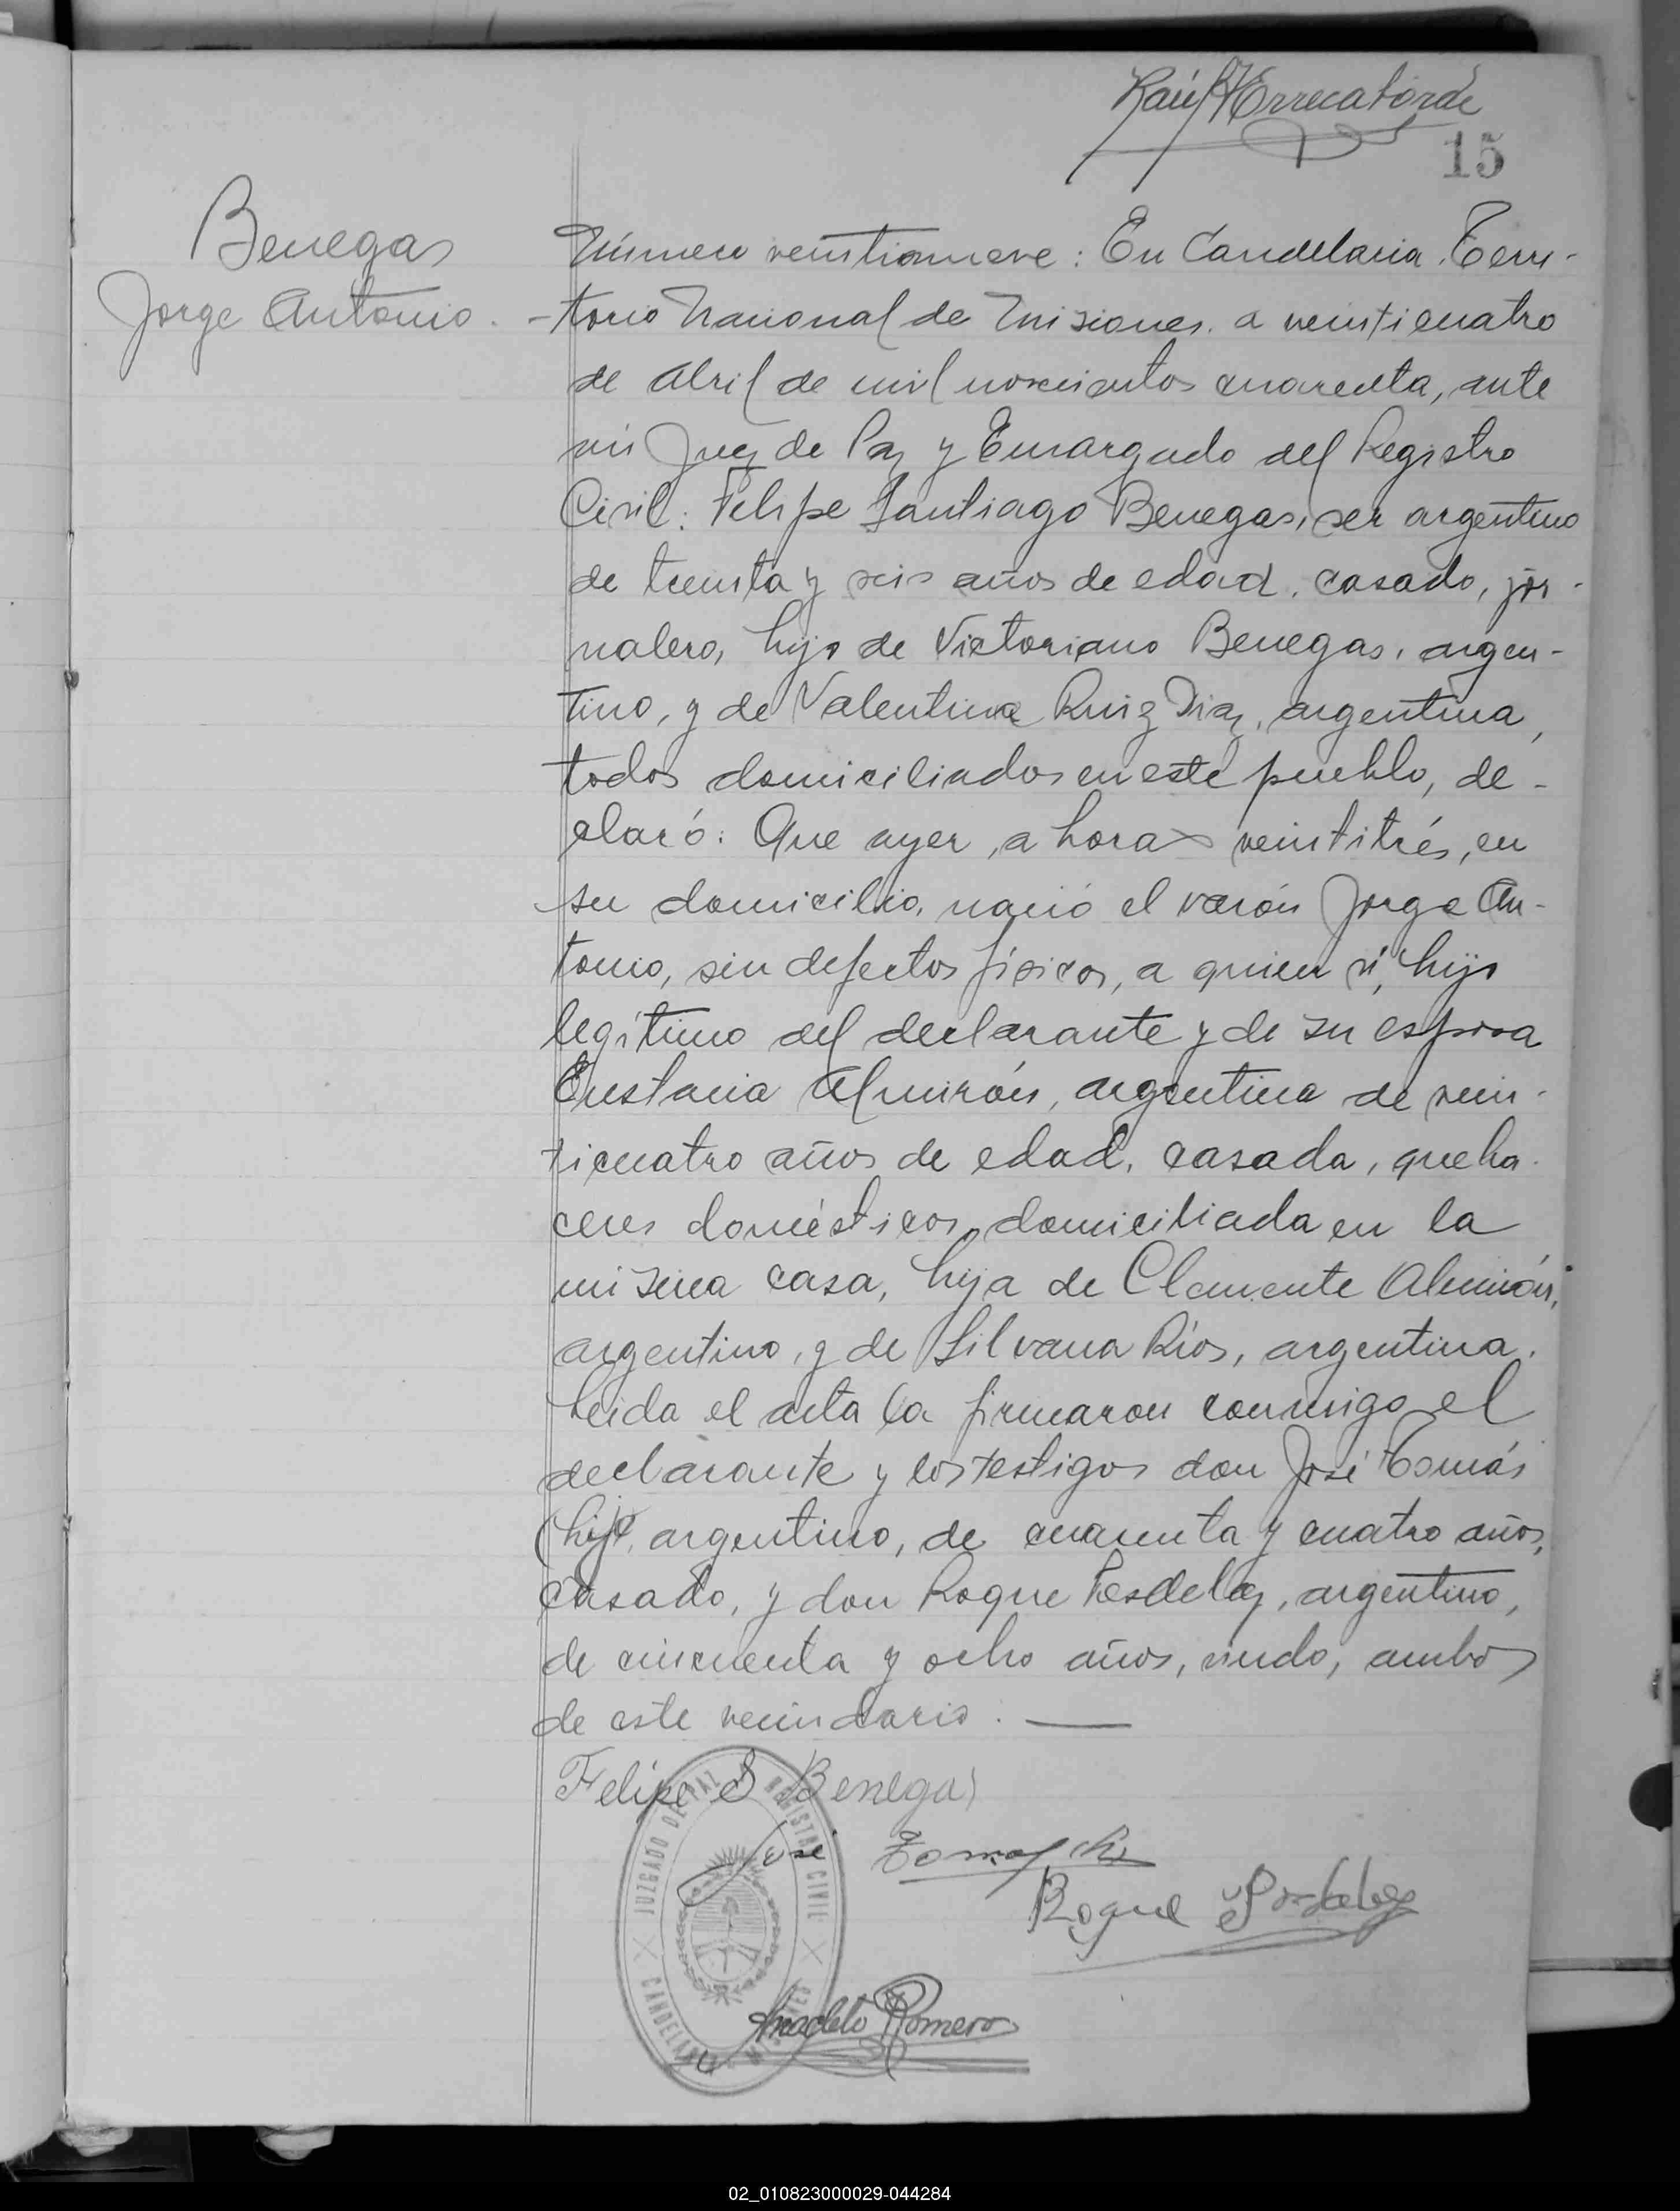 Raúl Errecaborde
15
Benegas
Jorge Antonio.
Número veintinueve: En Candelaria. Terri-
-torio Nacional de Misiones. a veinticuatro
de Abril de mil novecientos cuarenta, ante
mi Juez de Paz y Encargado del Registro
Civil: Felipe Santiago Benegas, ser argentino
de treinta y seis años de edad, casado, jor-
nalero, hijo de Victoriano Benegas, argen-
tino, y de Valentina Ruiz Diaz, argentina,
todos domiciliados en este pueblo, de-
claró: Que ayer, a horas veintitrés, en
su domicilio, nació el varón Jorge An-
tonio, sin defectos físicos, a quien ví, hijo
legítimo del declarante y de su esposa
Eustacia Almirón, argentina de vein-
ticuatro años de edad, casada, queha-
ceres domésticos, domiciliada en la
misma casa, hija de Clemente Almirón,
argentino, y de Silvana Ríos, argentina.
Leida el acta la firmaron conmigo el
declarante y los testigos don José Tomás
(hijo, argentino, de cuarenta y cuatro años,
casado, y don Roque Posdeley, argentino,
de cincuenta y ocho años, viudo, ambos
de este vecindario.
Felipe S Benegas
José Tomas
Roque Posdeley
Anacleto Romero
JUZGADO DE PAZ Y REGISTRO CIVIL
CANDELARIA MISIONES
02_010823000029-044284